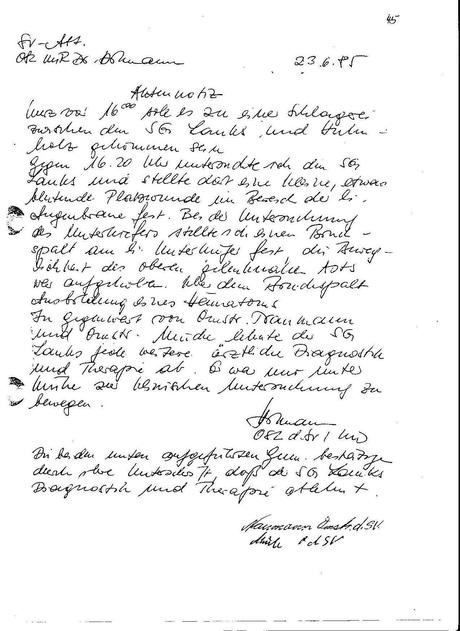 45
SV-Abt.
OSL MR Dr. Hofmann
23.6.85
Aktennotiz
Kurz vor 16⁰⁰ solle es zu einer Schlägerei
zwischen den SG Lauks und
holz gekommen sein
Gegen 16.20 Uhr untersuchte ich den SG
Lauks und stellte dort eine kleine, etwas
blutende Platzwunde im Bereich der li.
Augenbraue fest. Bei der Untersuchung
des Unterkiefers stellte ich einen Bruch-
spalt am li Unterkiefer fest die Beweg-
lichkeit des oberen gelenknahen Asts
war aufgehoben. Über dem Bruchspalt
Ausbildung eines Hämatoms
In Gegenwart von Omstr. Naumann
und Omstr. lehnte der SG
Lauks jede weitere ärztliche Diagnostik
und Therapie ab. Er war nur unter
Mühe zur klinischen Untersuchung zu
bewegen.
Hofmann
OSL d. SV / MR
Die beiden unten aufgeführten Gen. bestätigen
durch ihre Unterschrift, daß der SG Lauks
Diagnostik und Therapie ablehnt.
Naumann Omstr. d. SV
d SV